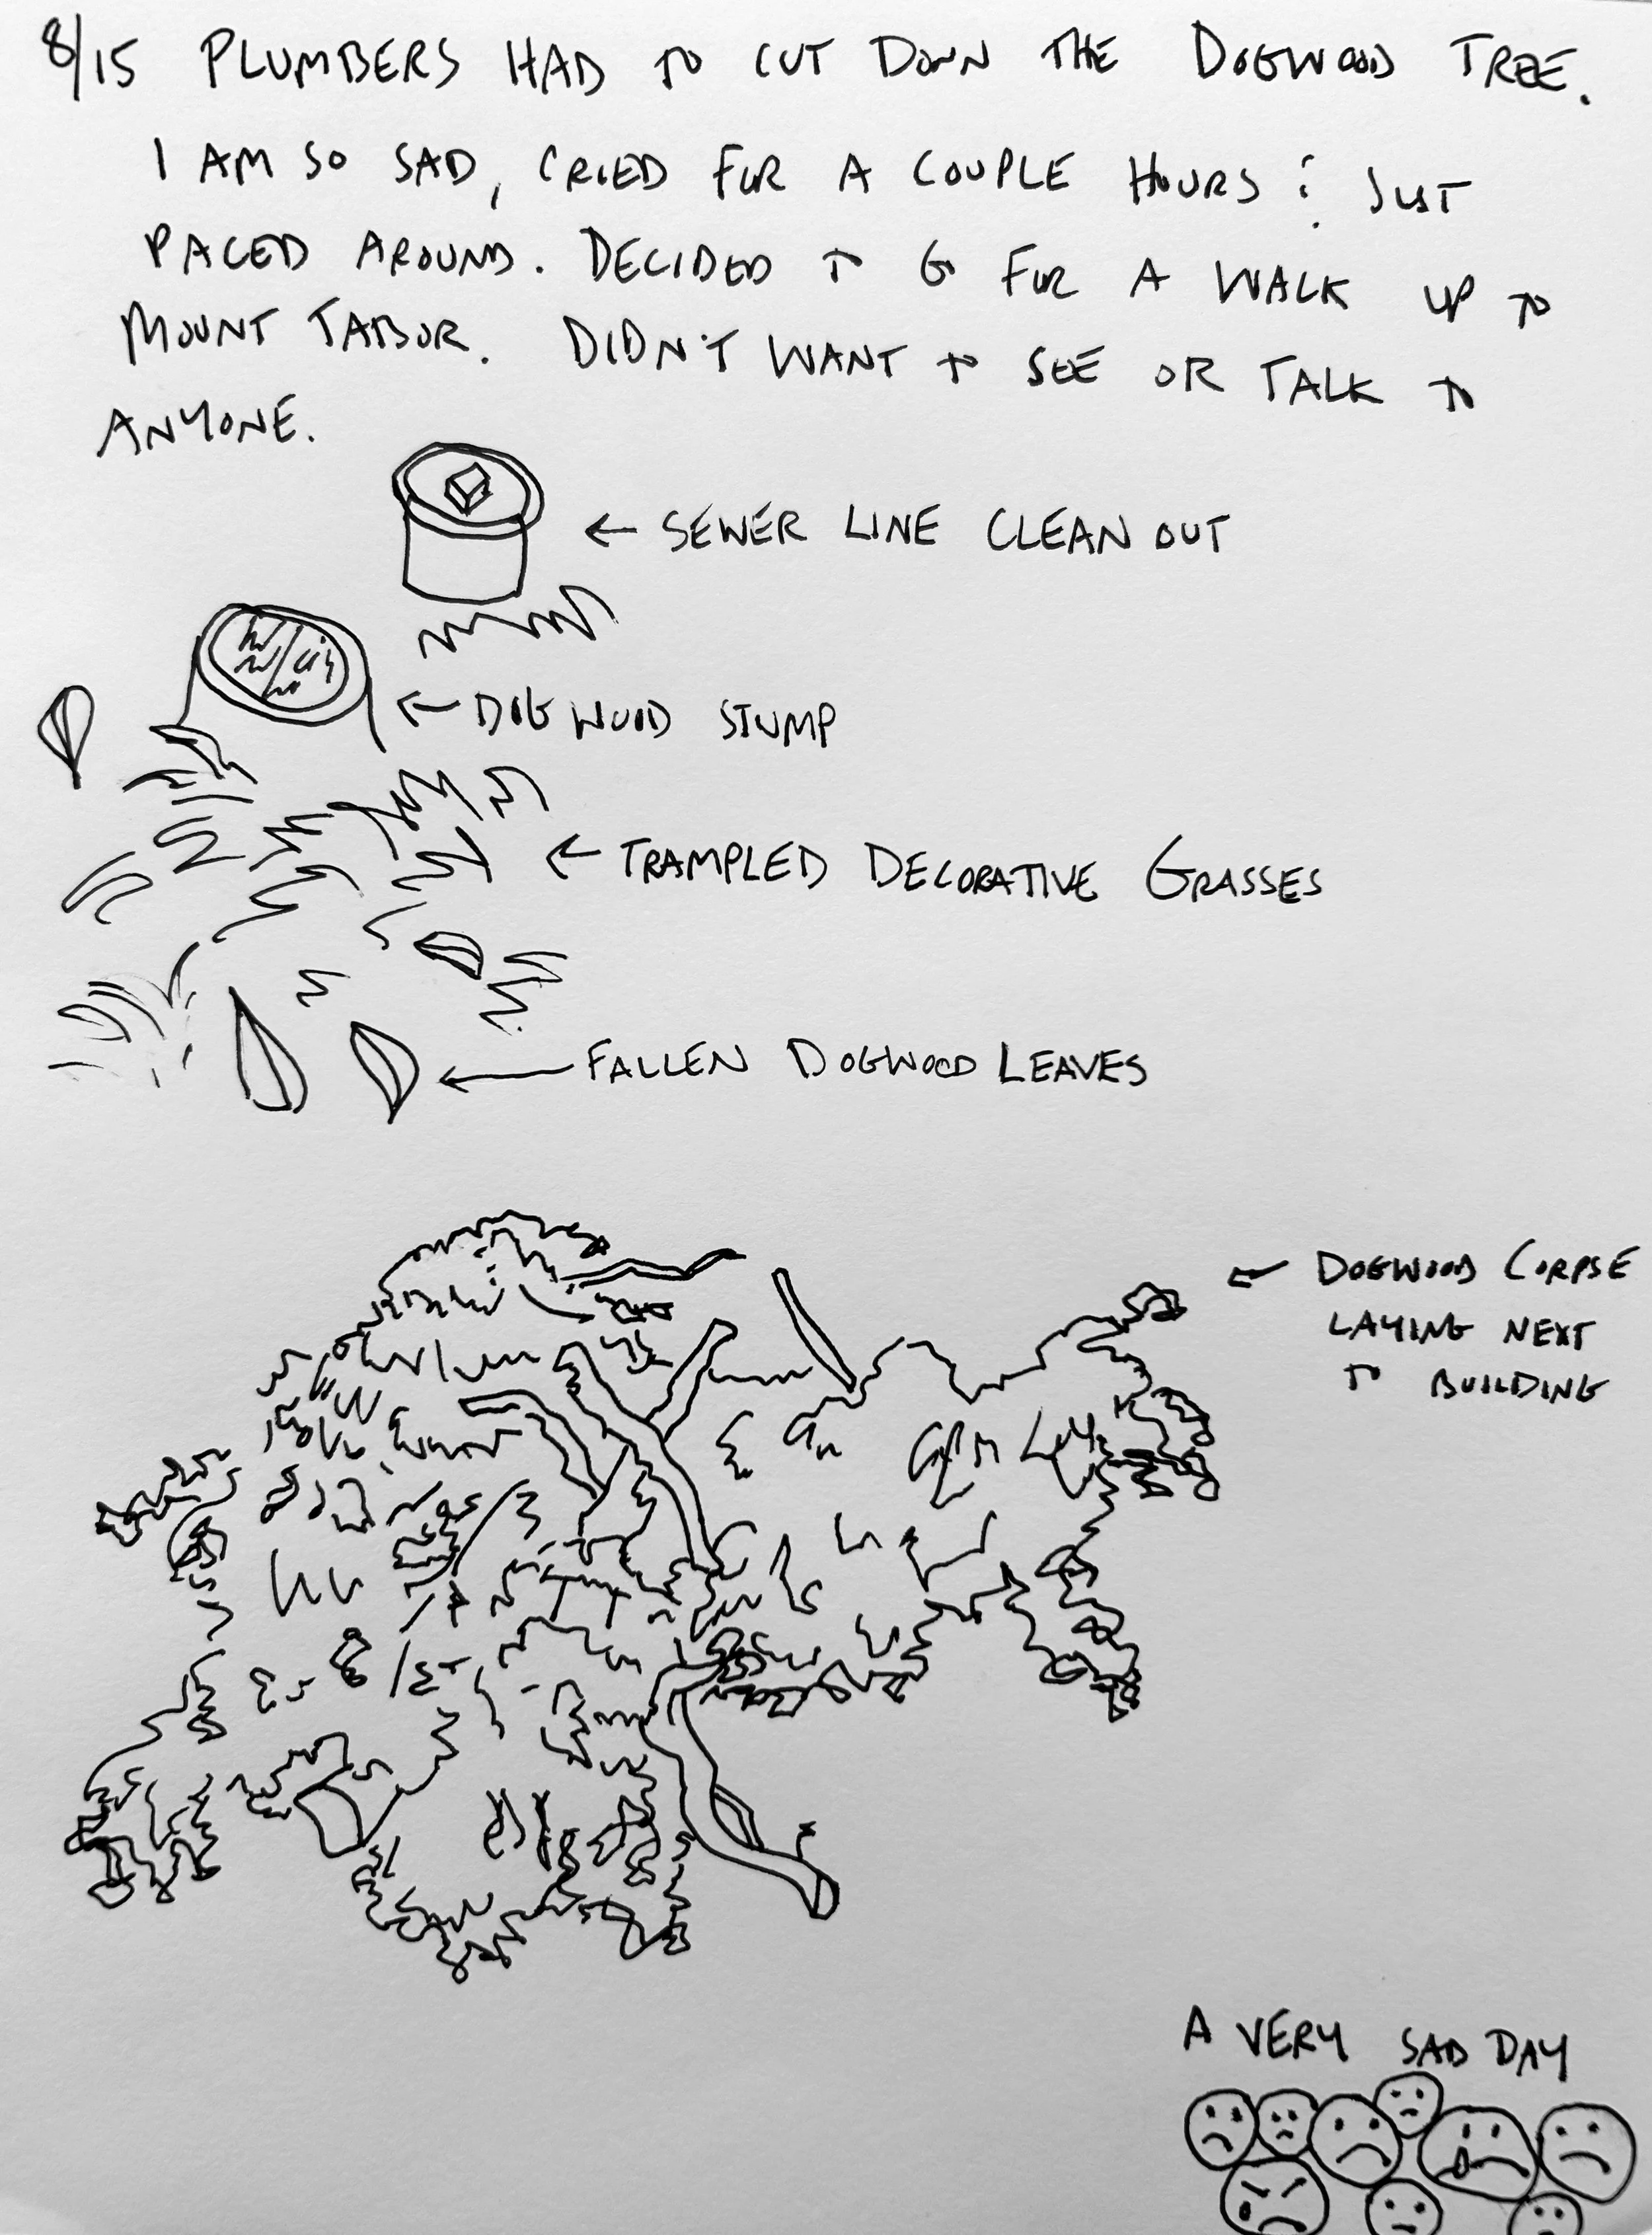 8/15 PLUMBERS HAD TO CUT DOWN THE DOGWOOD TREE.
I AM SO SAD, CRIED FOR A COUPLE HOURS & JUST
PACED AROUND. DECIDED TO GO FOR A WALK UP TO
MOUNT TABOR. DIDN'T WANT TO SEE OR TALK TO
ANYONE.
← SEWER LINE CLEAN OUT
← DOGWOOD STUMP
← TRAMPLED DECORATIVE GRASSES
← FALLEN DOGWOOD LEAVES
← DOGWOOD CORPSE
LAYING NEXT
TO BUILDING
A VERY SAD DAY